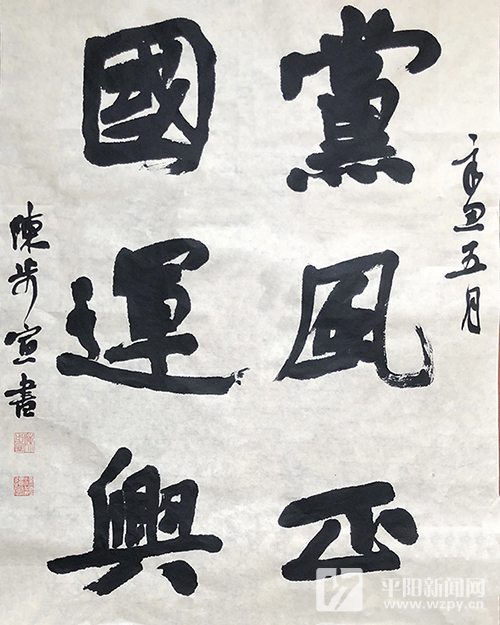 辛丑五月
黨風正
國運興
陳步宣書
平阳新闻网
www.wzpy.cn